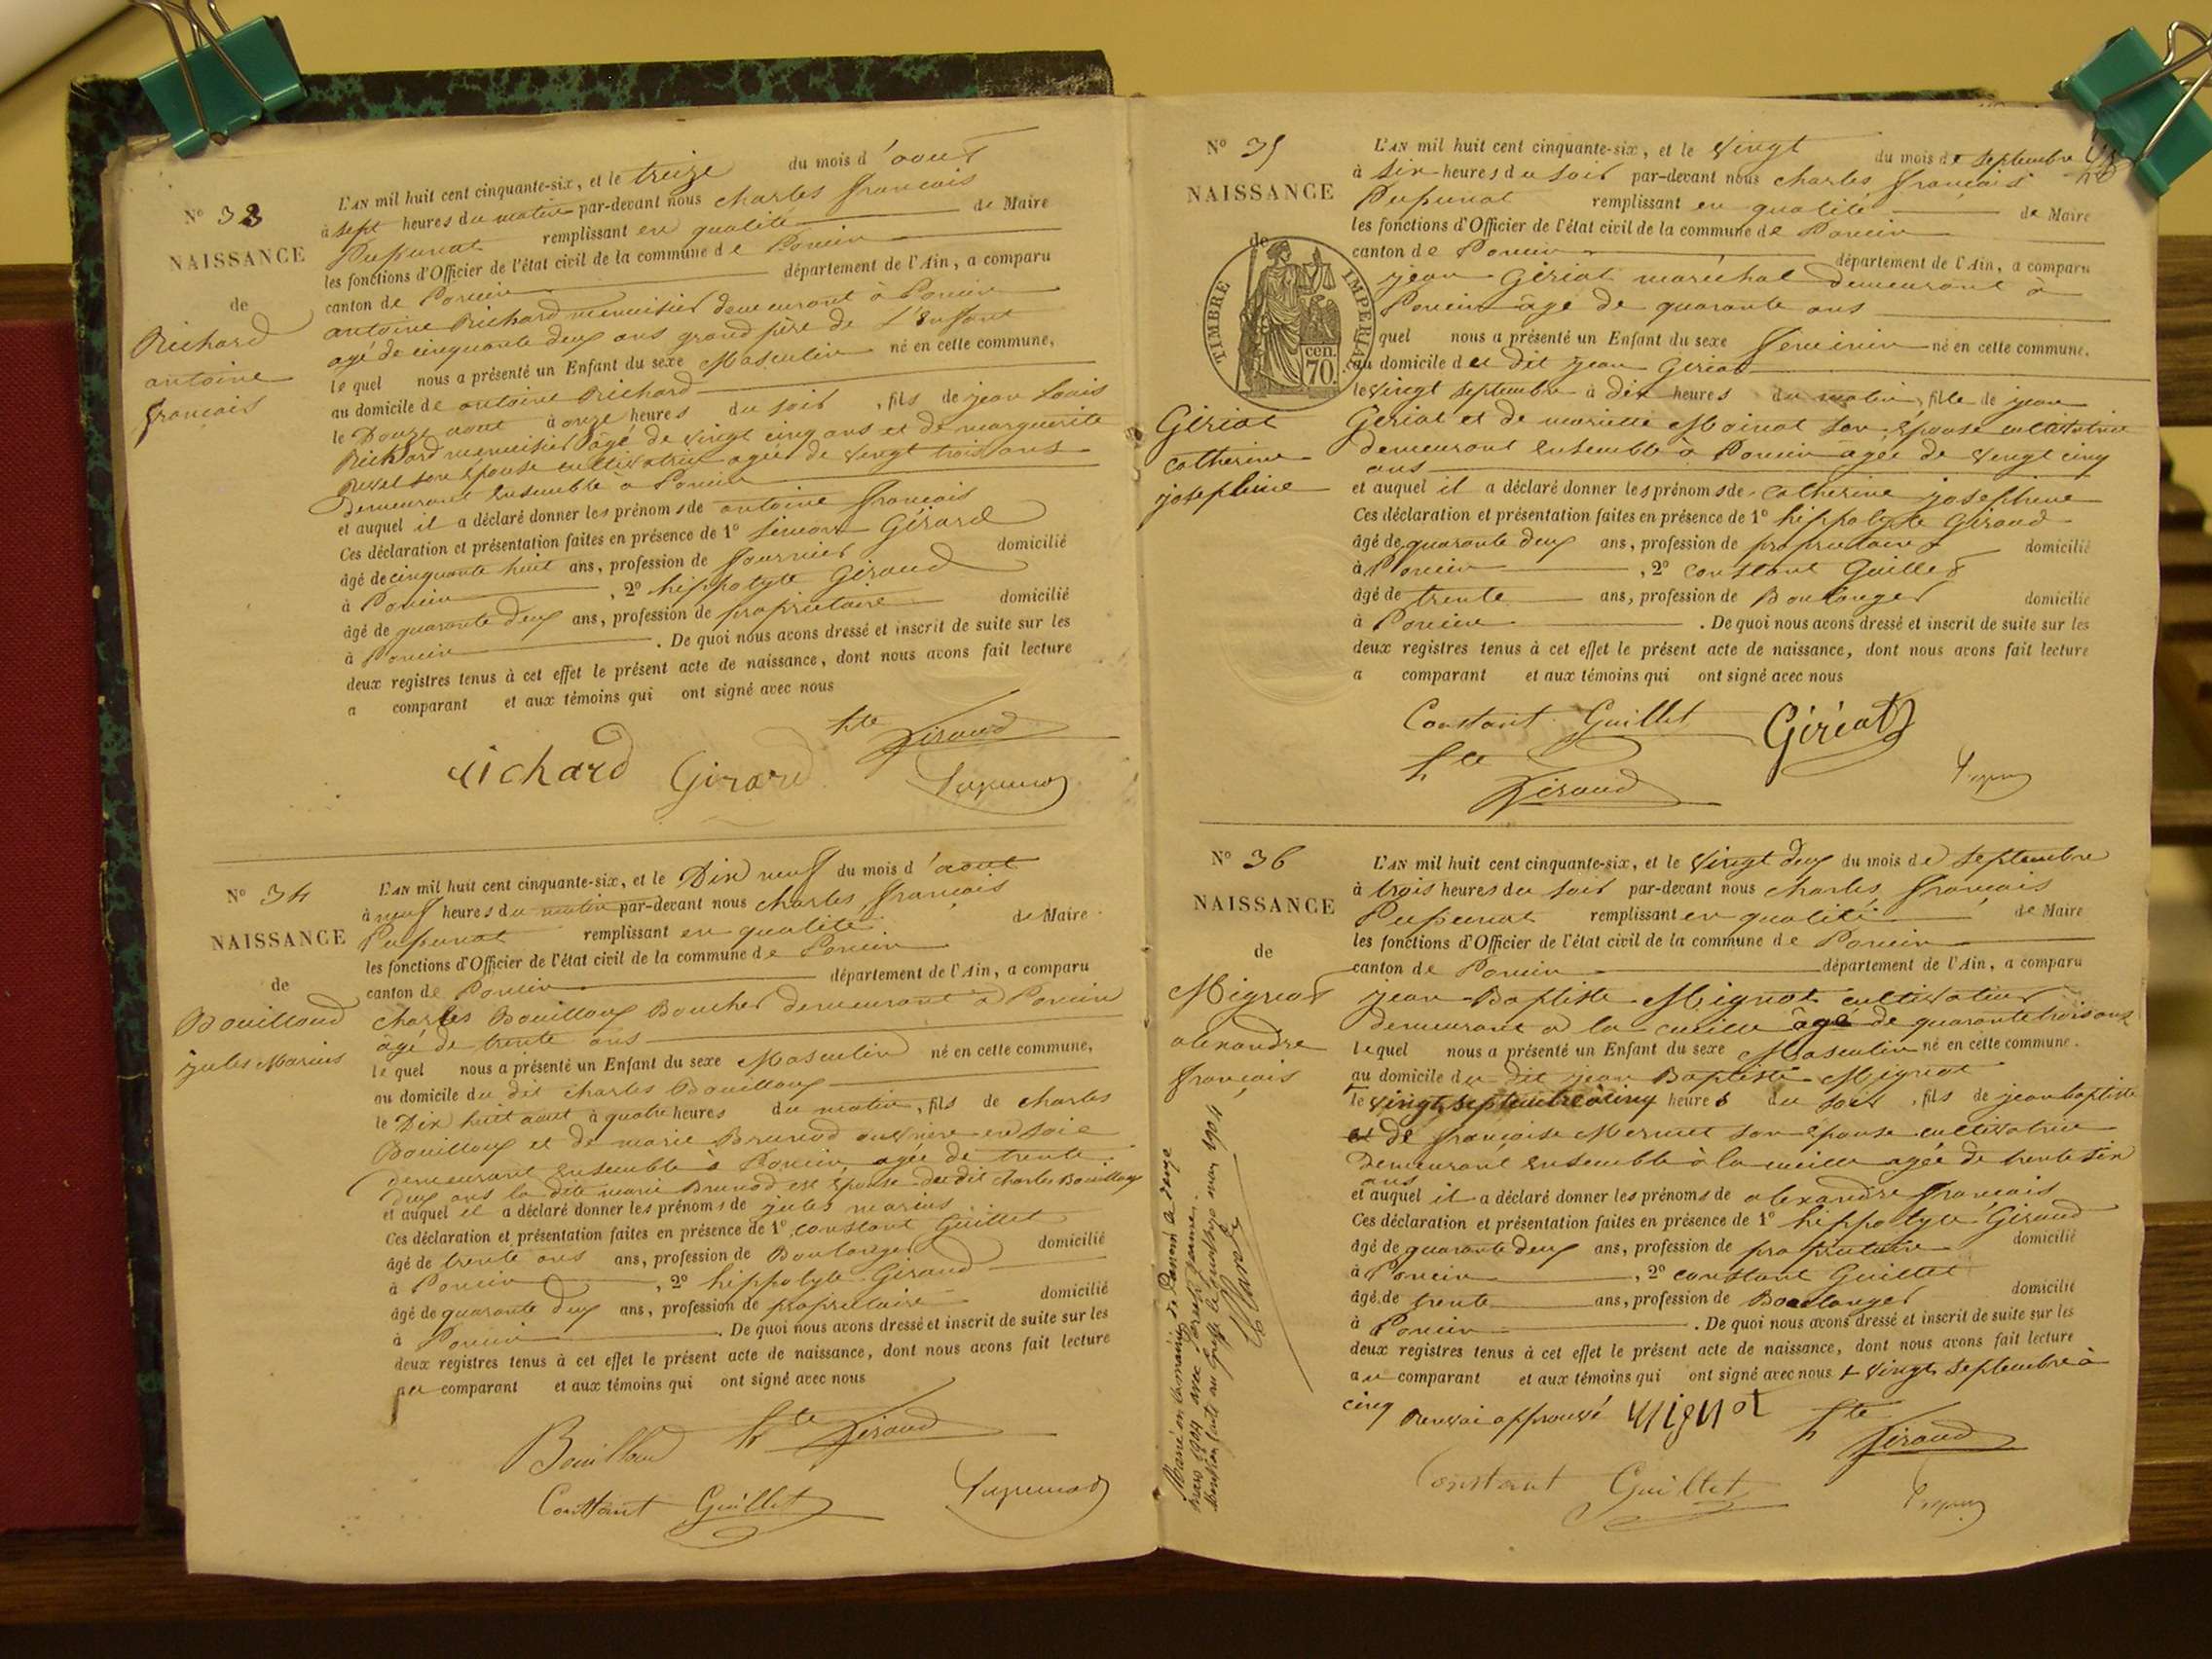 N° 33
NAISSANCE
de
Richard
antoine
francais
L'AN mil huit cent cinquante-six, et le treize du mois d'aout
à sept heures du matin par-devant nous charles francais
Pupunat remplissant en qualité de Maire
les fonctions d'Officier de l'état civil de la commune de Poncin
canton de Poncin département de l'Ain, a comparu
antoine Richard menuisier demeurant à Poncin
agé de cinquante deux ans grand père de L'Enfant
le quel nous a présenté un Enfant du sexe Masculin né en cette commune,
au domicile de antoine Richard
le Douze aout à onze heures du soir, fils de jean Louis
Richard menuisier âgé de vingt cinq ans et de marguerite
son Epouse cultivatrice agée de vingt trois ans
demeurant Ensemble à Poncin
et auquel il a déclaré donner les prénoms de antoine francais
Ces déclaration et présentation faites en présence de 1° Simon Girard
âgé de cinquante huit ans, profession de fournier domicilié
à Poncin, 2° hippolyte Giraud
âgé de quarante deux ans, profession de propriétaire domicilié
à Poncin. De quoi nous avons dressé et inscrit de suite sur les
deux registres tenus à cet effet le présent acte de naissance, dont nous avons fait lecture
a comparant et aux témoins qui ont signé avec nous
richard Girard hte Giraud
Pupunat
N° 34
NAISSANCE
de
Bouilloud
jules Marius
L'AN mil huit cent cinquante-six, et le Dix neuf du mois d'aout
à neuf heures du matin par-devant nous charles francais
Pupunat remplissant en qualité de Maire
les fonctions d'Officier de l'état civil de la commune de Poncin
canton de Poncin département de l'Ain, a comparu
Charles Bouilloux Boucher demeurant à Poncin
âgé de trente ans
le quel nous a présenté un Enfant du sexe Masculin né en cette commune,
au domicile du dit charles Bouilloux
le Dix huit aout à quatre heures du matin, fils de charles
Bouilloux et de marie Brunod ouvrière en soie
demeurant Ensemble à Poncin agée de trente
deux ans la dite marie Brunod est Epouse du dit charles Bouilloux
et auquel il a déclaré donner les prénoms de jules marius
Ces déclaration et présentation faites en présence de 1° constant Guillet
âgé de trente ans ans, profession de Boulanger domicilié
à Poncin, 2° hippolyte Giraud
âgé de quarante deux ans, profession de propriétaire domicilié
à Poncin. De quoi nous avons dressé et inscrit de suite sur les
deux registres tenus à cet effet le présent acte de naissance, dont nous avons fait lecture
au comparant et aux témoins qui ont signé avec nous
Bouilloud hte Giraud
Constant Guillet Pupunat
N° 35
NAISSANCE
de
TIMBRE IMPERIAL
70 cen.
Gériat
catherine
josephine
L'AN mil huit cent cinquante-six, et le vingt du mois de septembre
à six heures du soir par-devant nous charles francais
Pupunat remplissant en qualité de Maire
les fonctions d'Officier de l'état civil de la commune de Poncin
canton de Poncin département de l'Ain, a comparu
jean Gériat maréchal demeurant à
Poncin âge de quarante ans
quel nous a présenté un Enfant du sexe féminin né en cette commune,
au domicile du dit jean Gériat
le vingt septembre à dix heures du matin, fille de jean
Gériat et de mariette Moinat son Epouse cultivatrice
demeurant Ensemble à Poncin agée de vingt cinq
ans
et auquel il a déclaré donner les prénoms de catherine josephine
Ces déclaration et présentation faites en présence de 1° hippolyte Giraud
âgé de quarante deux ans, profession de propriétaire domicilié
à Poncin, 2° constant Guillet
âgé de trente ans, profession de Boulanger domicilié
à Poncin. De quoi nous avons dressé et inscrit de suite sur les
deux registres tenus à cet effet le présent acte de naissance, dont nous avons fait lecture
a comparant et aux témoins qui ont signé avec nous
Constant Guillet Gériat
hte Giraud
N° 36
NAISSANCE
de
Mignot
alexandre
francais
Marié en la mairie de a douze
mars 1904 avec
Mention faite au Greffe le mars 1904
L'AN mil huit cent cinquante-six, et le vingt deux du mois de septembre
à trois heures du soir par-devant nous charles francais
Pupunat remplissant en qualité de Maire
les fonctions d'Officier de l'état civil de la commune de Poncin
canton de Poncin département de l'Ain, a comparu
jean Baptiste Mignot cultivateur
demeurant à la cueille âgé de quarante trois ans
lequel nous a présenté un Enfant du sexe Masculin né en cette commune.
au domicile du dit jean Baptiste Mignot
le vingt septembre à cinq heures du soir, fils de jean baptiste
et de françoise Mermet son Epouse cultivatrice
demeurant Ensemble à la cueille agée de trente six
ans
et auquel il a déclaré donner les prénoms de alexandre francais
Ces déclaration et présentation faites en présence de 1° hippolyte Giraud
âgé de quarante deux ans, profession de propriétaire domicilié
à Poncin, 2° constant Guillet
âgé de trente ans, profession de Boulanger domicilié
à Poncin. De quoi nous avons dressé et inscrit de suite sur les
deux registres tenus à cet effet le présent acte de naissance, dont nous avons fait lecture
au comparant et aux témoins qui ont signé avec nous + vingt septembre à
cinq Renvoi approuvé Mignot hte
Giraud
Constant Guillet